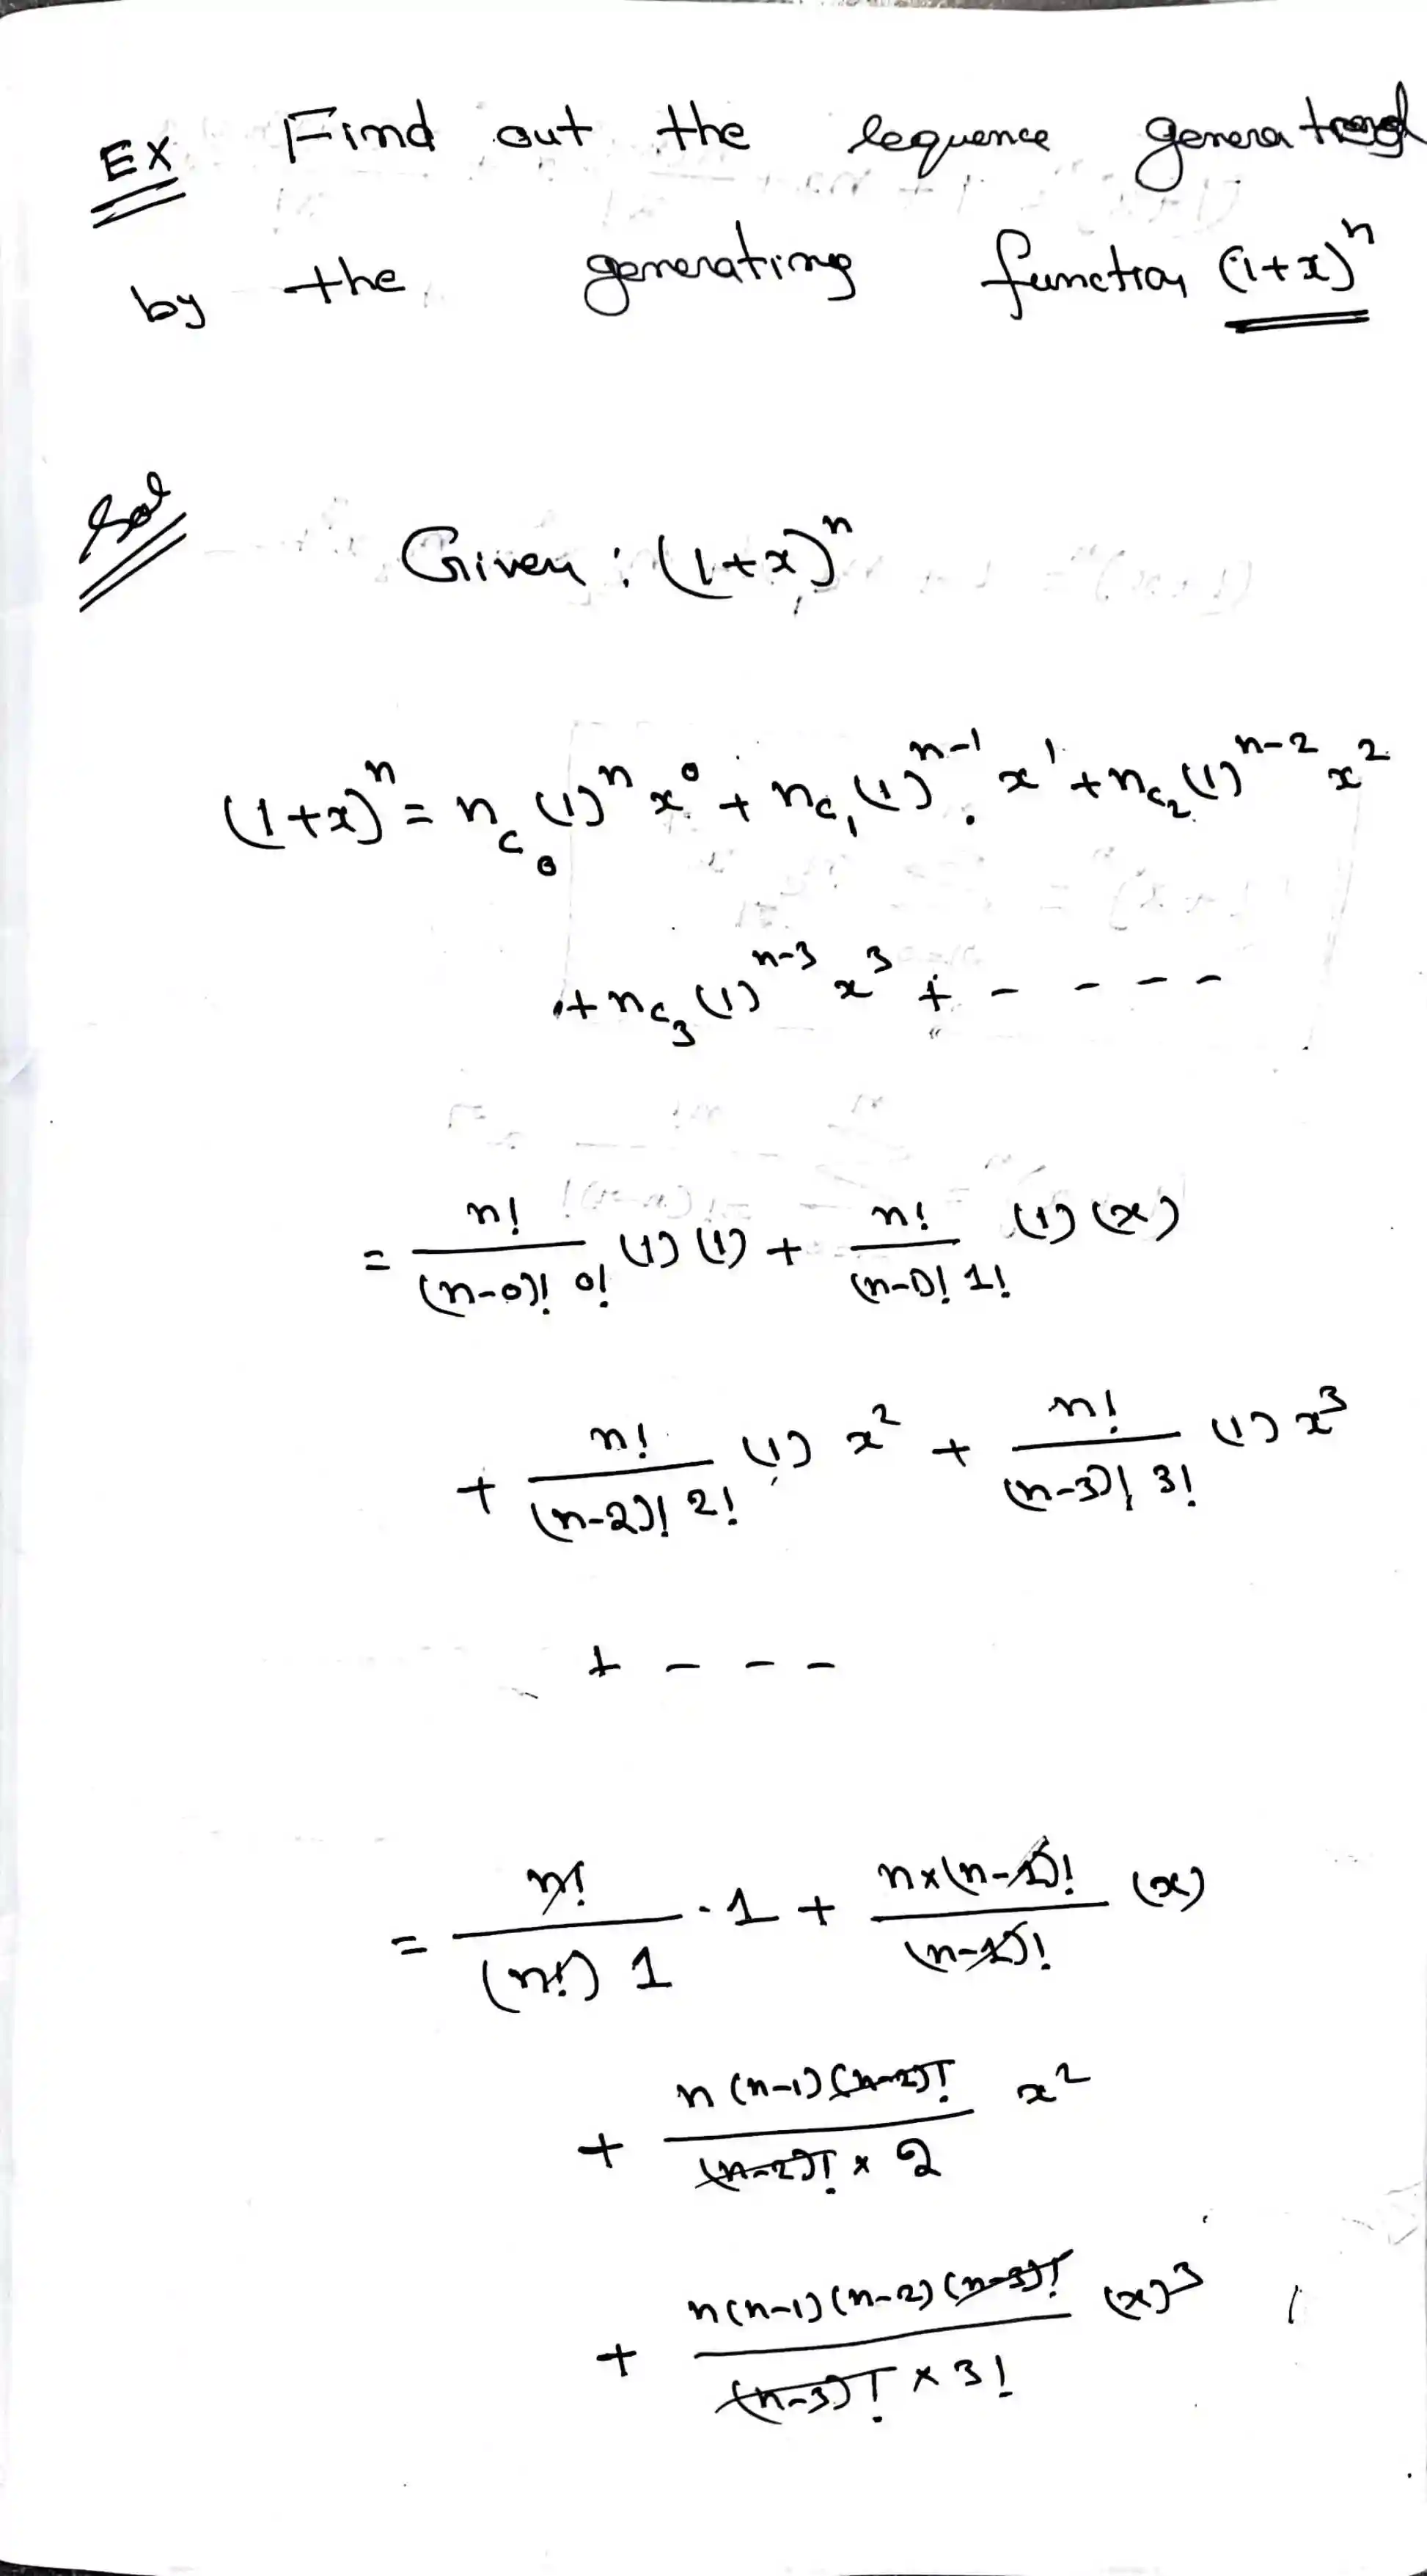 EX Find out the sequence generated
by the generating function (1+x)^n
Sol
Given : (1+x)^n
(1+x)^n = n_C_0 (1)^n x^0 + n_C_1 (1)^{n-1} x^1 + n_C_2 (1)^{n-2} x^2
+ n_C_3 (1)^{n-3} x^3 + - - - -
= n!/((n-0)! 0!) (1) (1) + n!/((n-1)! 1!) (1) (x)
+ n!/((n-2)! 2!) (1) x^2 + n!/((n-3)! 3!) (1) x^3
+ - - -
= n!/((n!) 1) · 1 + n×(n-1)!/(n-1)! (x)
+ n(n-1)(n-2)!/((n-2)! × 2) x^2
+ n(n-1)(n-2)(n-3)!/((n-3)! × 3!) (x)^3